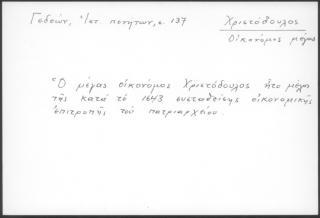 Γεδεών, Ἱστ. πενήτων, σ. 137
Χριστόδουλος
Οἰκονόμος μέγας
Ὁ μέγας οἰκονόμος Χριστόδουλος ἦτο μέλος
τῆς κατὰ τὸ 1643 συσταθείσης οἰκονομικῆς
ἐπιτροπῆς τοῦ πατριαρχείου.